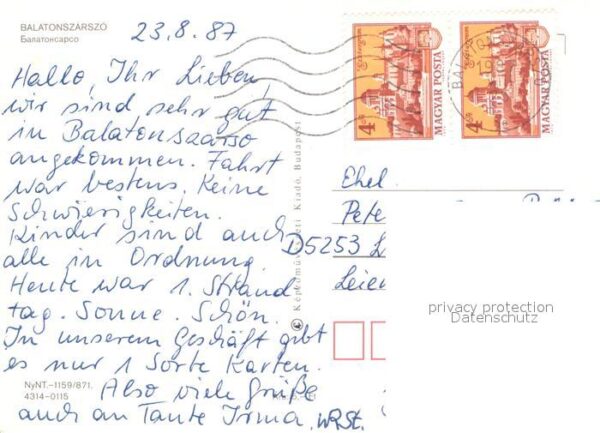 BALATONSZÁRSZÓ
Балатонсарсо
23.8.87
Hallo, Ihr Lieben,
wir sind sehr gut
in Balatonszarso
angekommen. Fahrt
war bestens. Keine
Schwierigkeiten.
Kinder sind auch
alle in Ordnung.
Heute war 1. Strand
tag. Sonne. Schön.
In unserem Geschäft gibt
es nur 1 Sorte Karten.
Also viele Grüße
auch an Tante Irma.
NyNT.–1159/871.
4314–0115
Képzőművészeti Kiadó, Budapest
4
MAGYAR POSTA
4
MAGYAR POSTA
Ehel.
Pete
D5253 L
Leie
privacy protection
Datenschutz